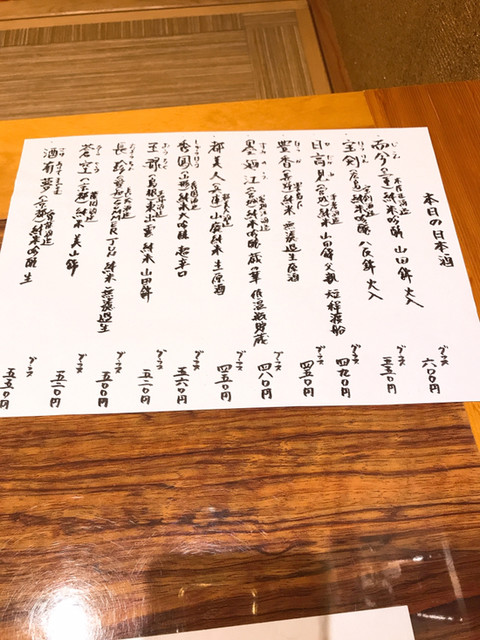 本日の日本酒
而今(三重)純米吟醸 山田錦 火入 グラス 六〇〇円
宝剣(広島)純米吟醸 八反錦 火入 グラス 五五〇円
日高見(宮城)純米 山田錦 父親 短稈渡船 グラス 四九〇円
豊香(長野)純米 無濾過生原酒 グラス 四五〇円
墨廼江(宮城)純米吟醸 蔵の華 低温瓶貯蔵 グラス 四八〇円
都美人(兵庫)山廃純米 生原酒 グラス 四五〇円
秀鳳(山形)純米大吟醸 超辛口 グラス 五六〇円
王祿(島根)東出雲 純米 山田錦 グラス 五二〇円
長珍(愛知)純米 無濾過生 グラス 五〇〇円
蒼空(京都)純米 美山錦 グラス 五二〇円
酒有夢(京都)純米吟醸 生 グラス 五五〇円